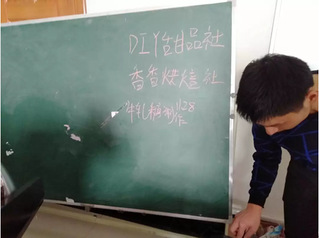 DIY甜品社
香香烘焙社
牛轧糖制作
1128